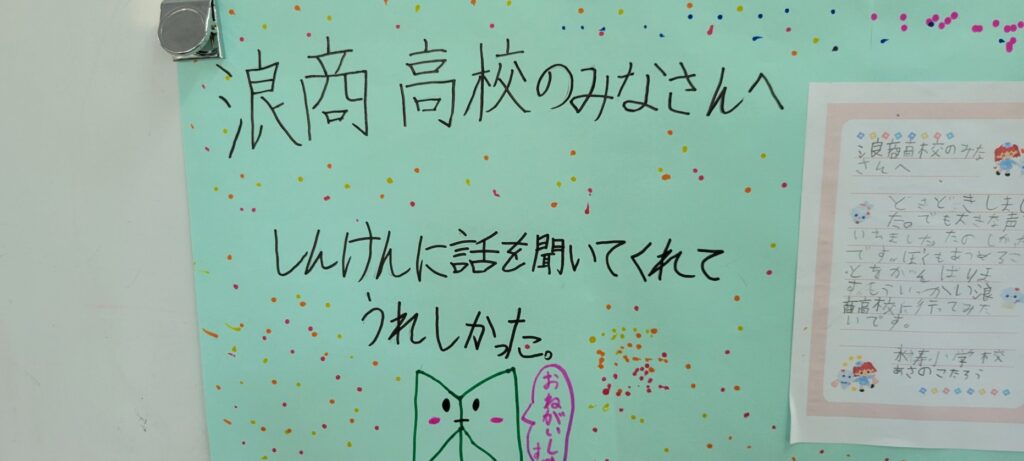 浪商高校のみなさんへ
しんけんに話を聞いてくれて
うれしかった。
おねがいしま
す
浪商高校のみな
さんへ
どきどきしまし
た。でも大きな声
いちもした。たのしかた
です。ぼくもあつめるこ
とをがんばりま
すもういっかい浪
商高校に行ってみた
いです。
小学校
あさのこたろう